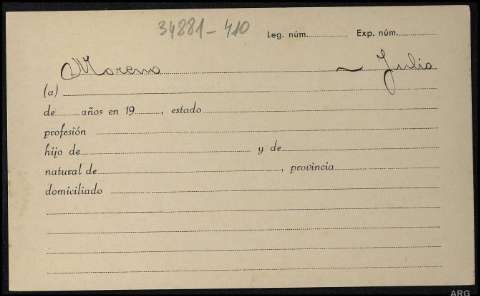 34881-410 Leg. núm. Exp. núm.
Moreno ~ Julio
(a)
de años en 19 , estado
profesión
hijo de y de
natural de , provincia
domiciliado
ARG